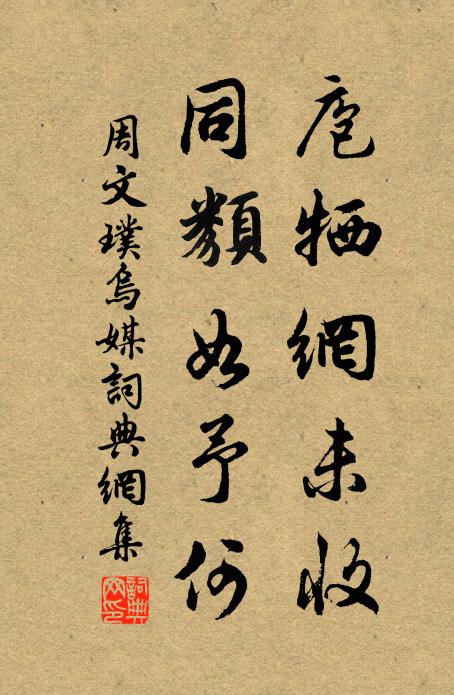 庖牺網未收
同類如予何
周文璞烏媒詞典網集
詞典网印